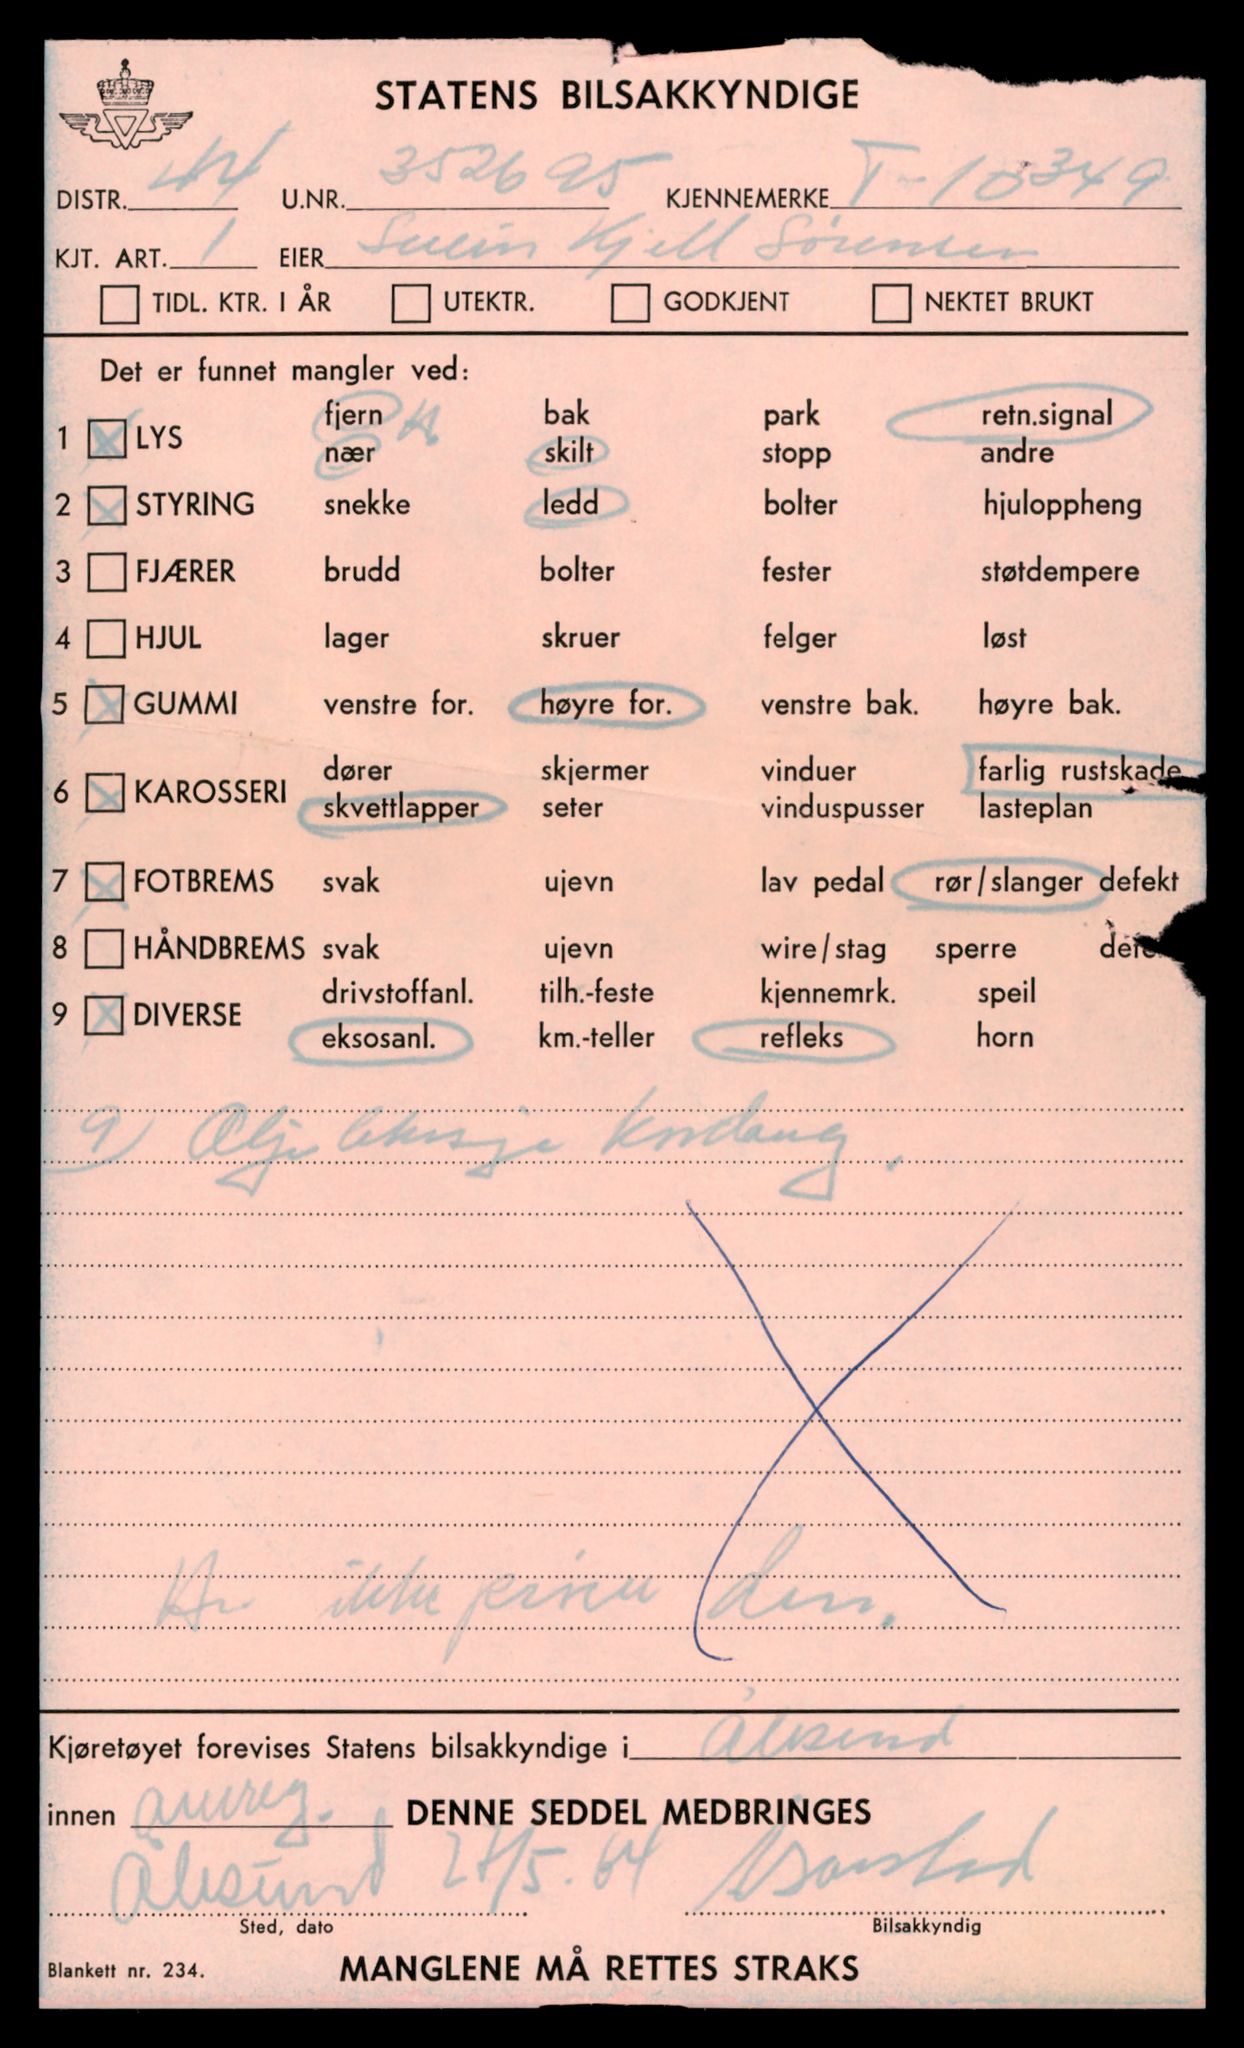 STATENS BILSAKKYNDIGE
DISTR. 44 U.NR. 352695 KJENNEMERKE T-10349
KJT. ART. 1 EIER Svein Kjell Sørensen
TIDL. KTR. I ÅR UTEKTR. GODKJENT NEKTET BRUKT
Det er funnet mangler ved:
fjern H bak park retn.signal
1 X LYS
nær skilt stopp andre
2 X STYRING snekke ledd bolter hjuloppheng
3 FJÆRER brudd bolter fester støtdempere
4 HJUL lager skruer felger løst
5 X GUMMI venstre for. høyre for. venstre bak. høyre bak.
dører skjermer vinduer farlig rustskade
6 X KAROSSERI
skvettlapper seter vinduspusser lasteplan
7 X FOTBREMS svak ujevn lav pedal rør/slanger defekt
8 HÅNDBREMS svak ujevn wire/stag sperre
drivstoffanl. tilh.-feste kjennemrk. speil
9 X DIVERSE
eksosanl. km.-teller refleks horn
9) Olje lekasje
ikke den.
Kjøretøyet forevises Statens bilsakkyndige i Ålesund
innen omreg. DENNE SEDDEL MEDBRINGES
Ålesund 27/5.64
Sted, dato Bilsakkyndig
Blankett nr. 234. MANGLENE MÅ RETTES STRAKS